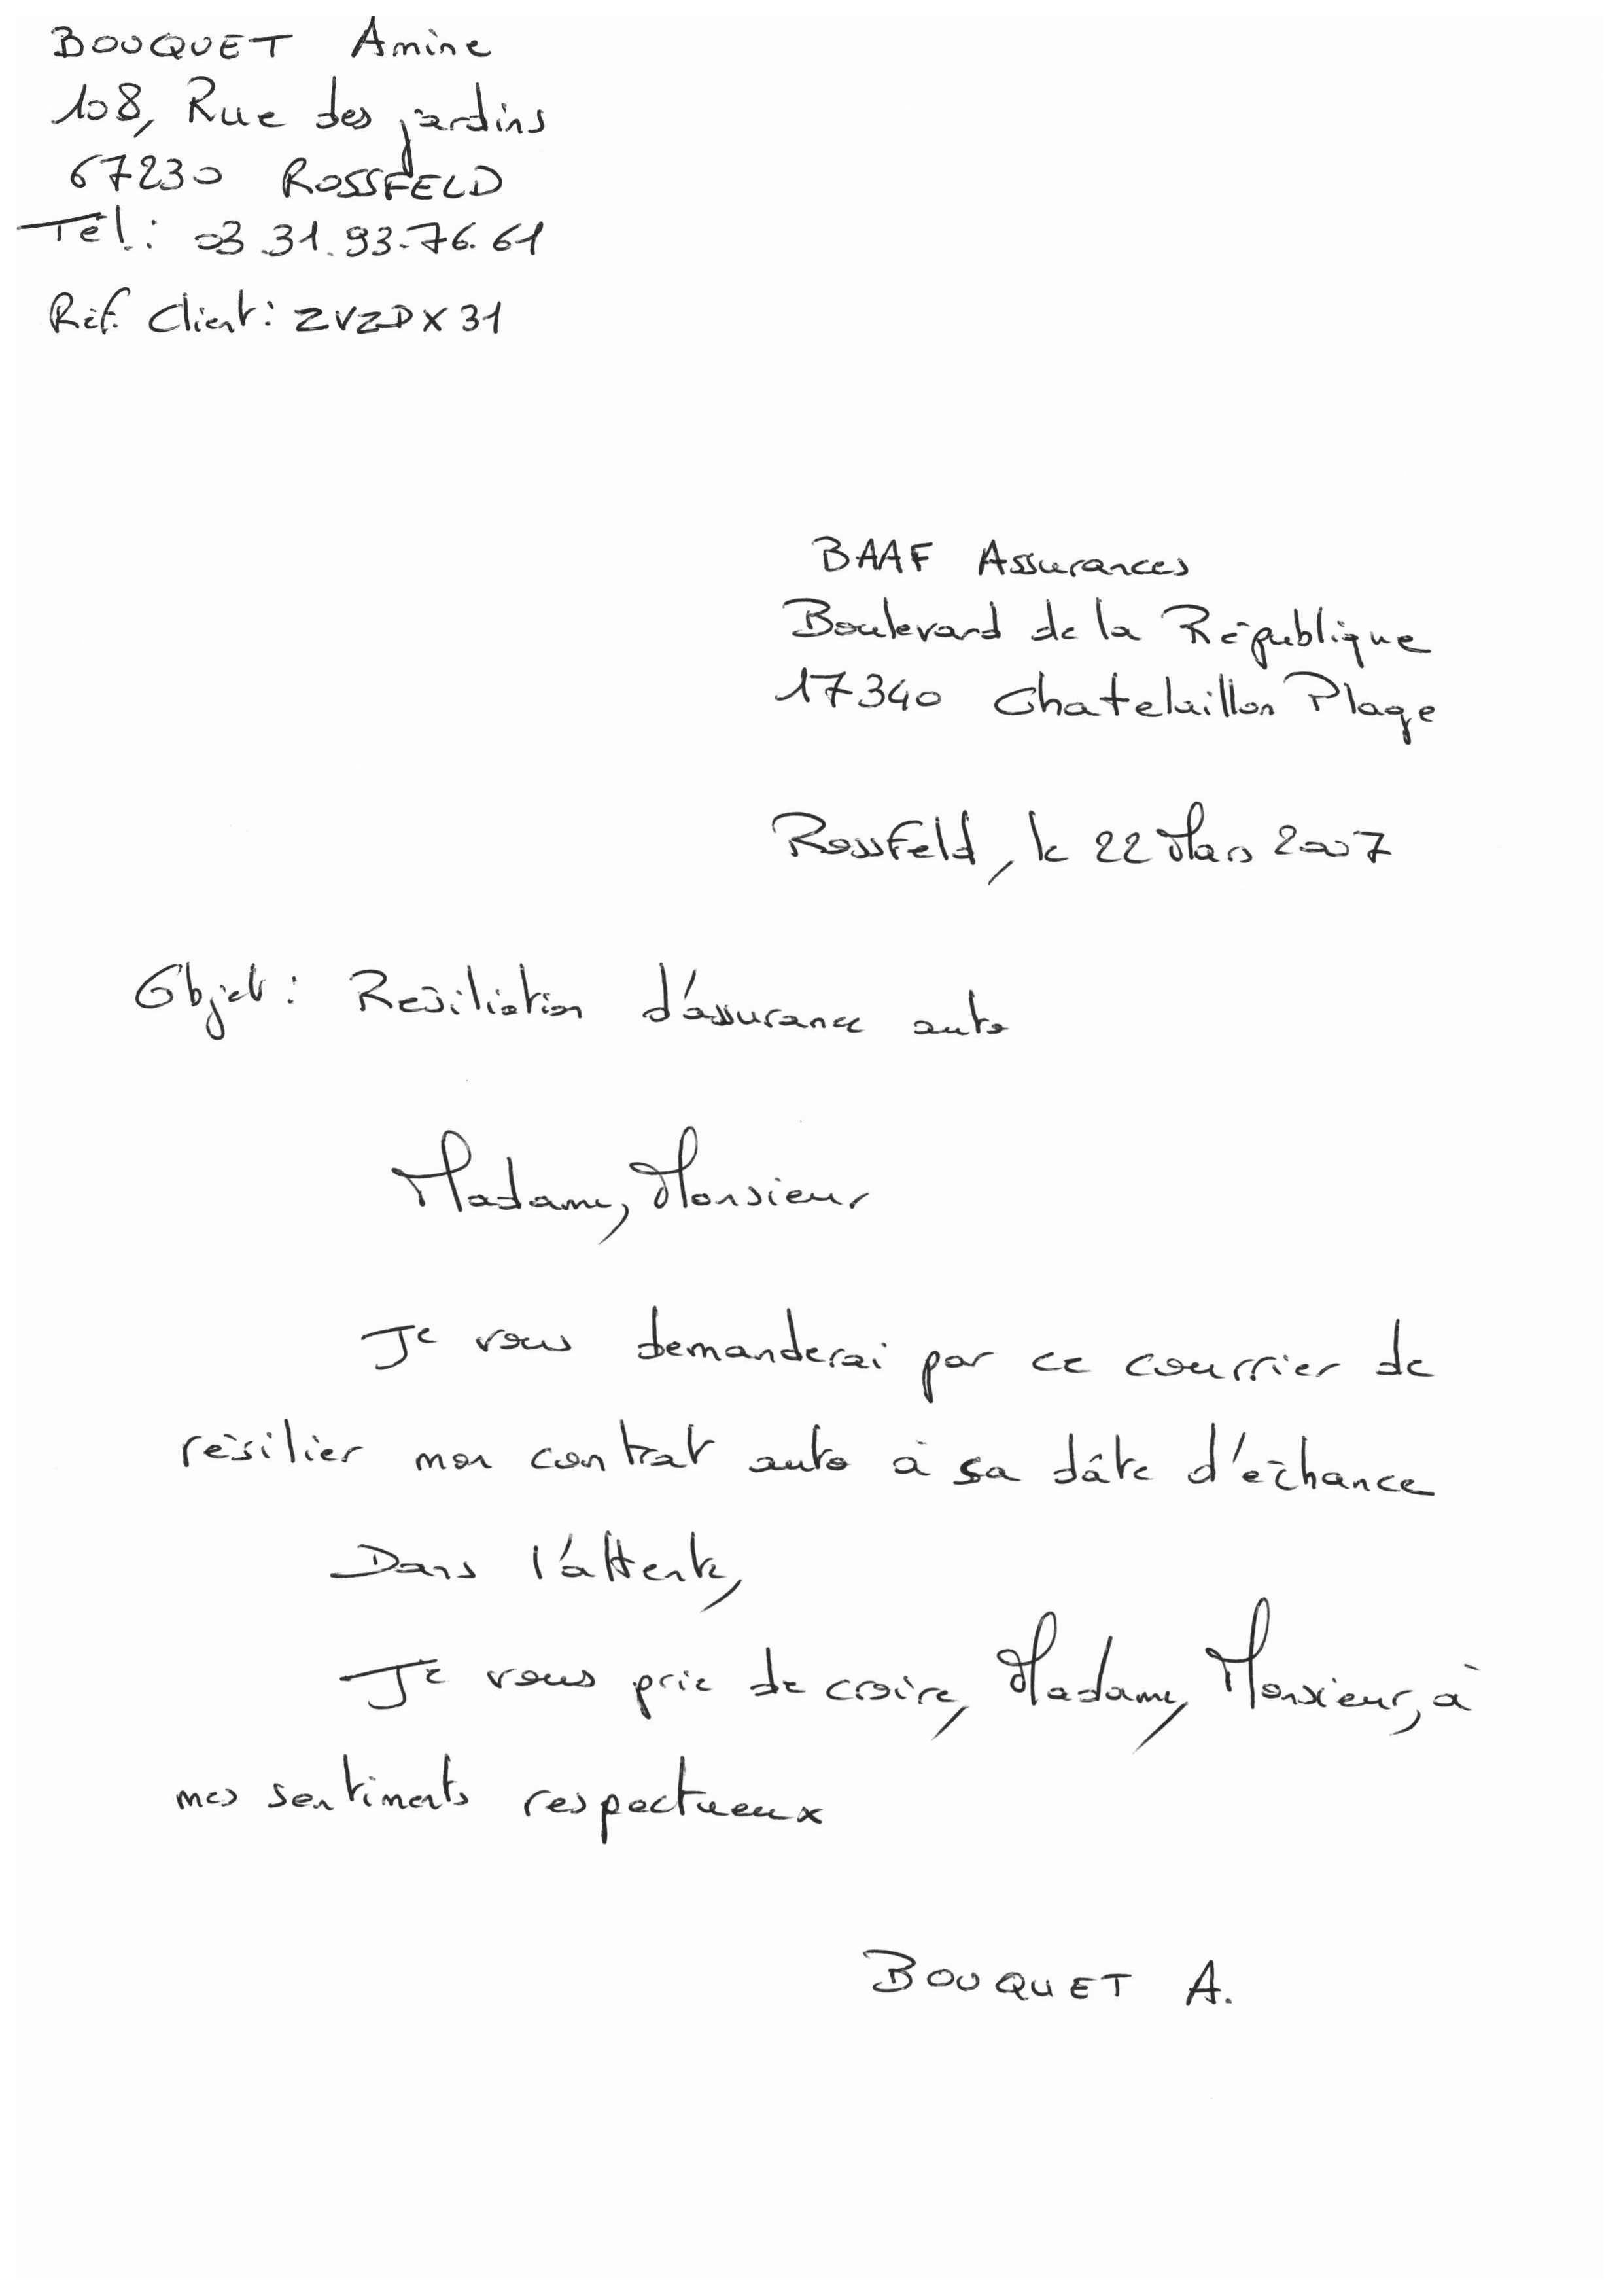 BOUQUET Amine
108, Rue des jardins
67230 ROSSFELD
Tél.: 03.31.93.76.61
Réf. Client: ZVZDX31
BAAF Assurances
Boulevard de la République
17340 Chatelaillon Plage
Rossfeld, le 22 Mars 2007
Objet: Résiliation d'assurance auto
Madame, Monsieur
Je vous demanderai par ce courrier de
résilier mon contrat auto à sa dâte d'échance
Dans l'attente,
Je vous prie de croire, Madame, Monsieur, à
mes sentiments respectueux
BOUQUET A.